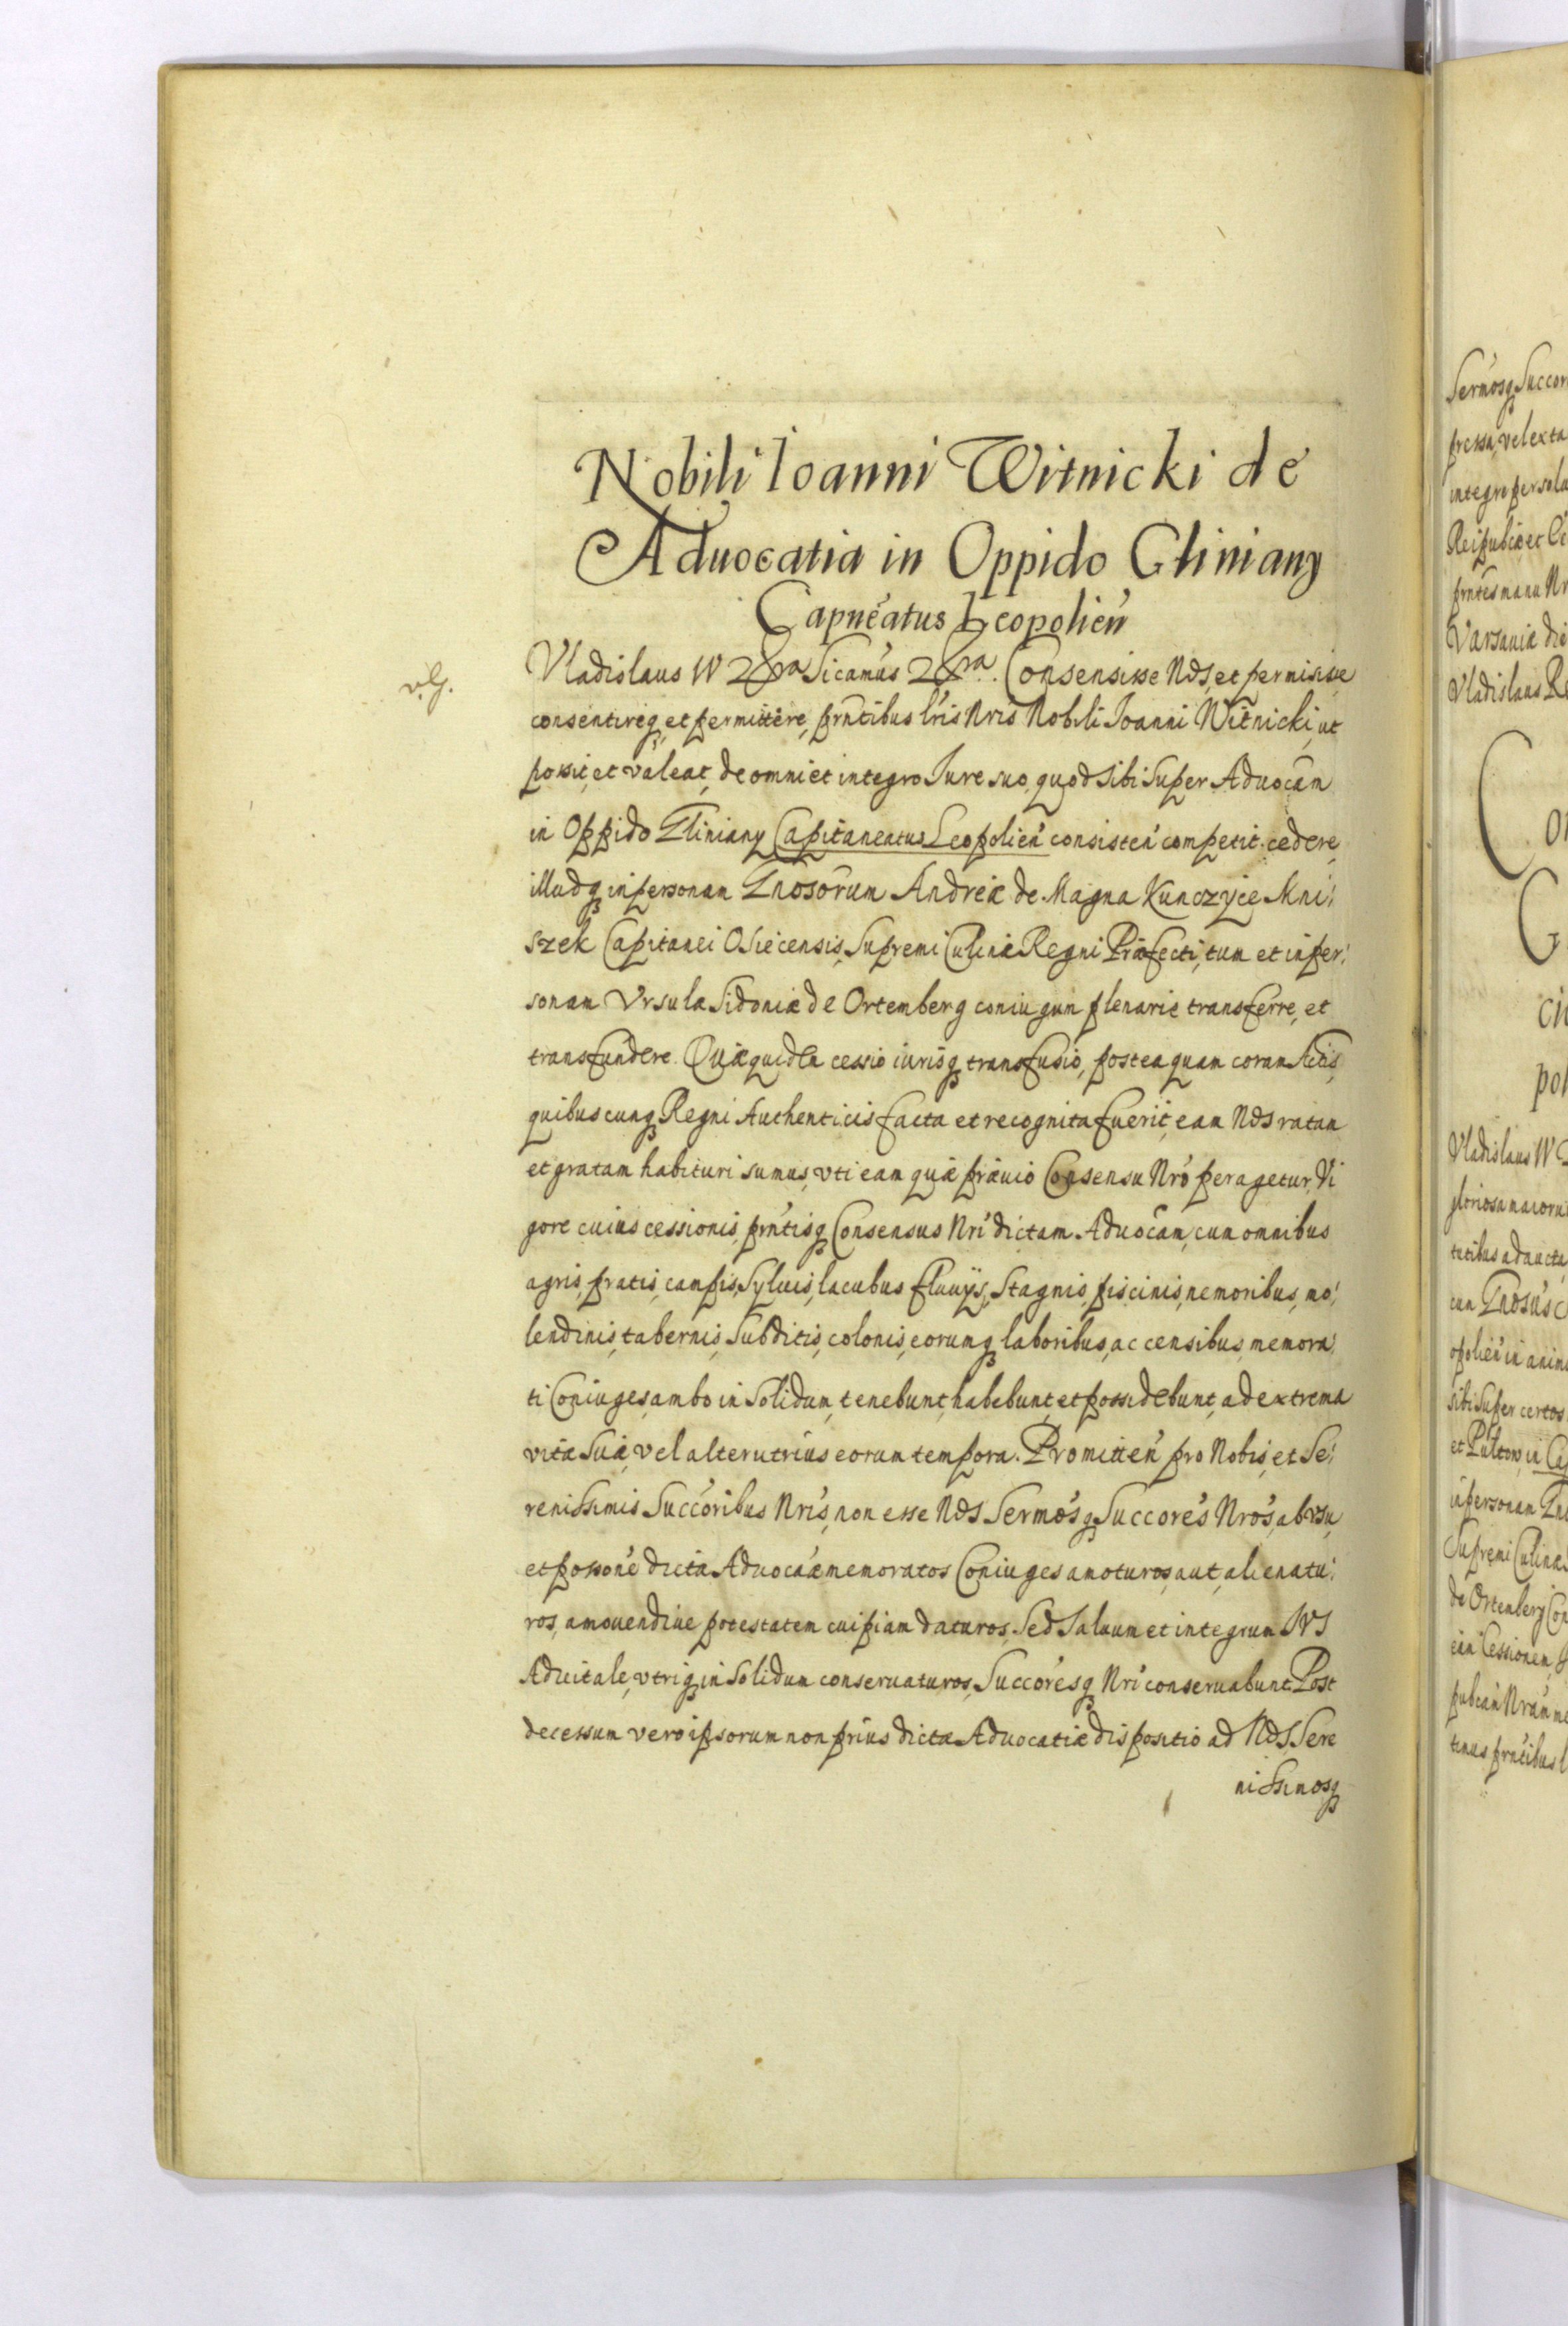 Nobili Ioanni Witnicki de
Aduocatia in Oppido Gliniany
Capnéatus Leopolień
Vladislaus IV Sicamús Consensisse Nos, et permisisse
consentireq, et permittere, prńtibus lris Nris Nobili Joanni Witnicki, ut
possit, et valeat, de omni et integro Jure suo, quod sibi super Aduocãm
in Oppido Gliniany Capitaneatus Leopolień consisteń competit. cedere,
illudq in personam Gnosorum Andreæ de Magna Kunczyce Mni:
szek Capitanei Osiecensis, Supremi Culinæ Regni Præfecti, tum et in per:
sonam Vrsulæ Sidoniæ de Ortemberg coniugum plenarie transferre, et
transfundere. Quæquidem cessio iurisq transfusio, postea quam coram Actis
quibuscunq Regni Authenticis facta et recognita fuerit, eam Nos ratam
et gratam habituri sumus, vti eam quæ præuio Consensu Nro peragetur, Vi
gore cuius cessionis, prńtisq Consensus Nri dictam Aduocãm, cum omnibus
agris, pratis, campis, Syluis, lacubus fluuijs, Stagnis, piscinis, nemoribus, mo:
lendinis, tabernis, Subditis, colonis, eorumq laboribus, ac censibus, memora:
ti Coniuges, ambo in Solidum, tenebunt, habebunt, et possidebunt, ad extrema
vitæ Suæ, vel alterutrius eorum tempora. Promitteń pro Nobis, et Se:
renissimis Succoribus Nris, non esse Nos Sermosq Succores Nros, ab vsu,
et possone dictæ Aduocaæ memoratos Coniuges amoturos, aut, alienatu:
ros, amouendiue potestatem cuipiam daturos, Sed Saluum et integrum IVS
Aduitale, vtriq in Solidum conseruaturos, Succoresq Nri conseruabunt Post
decessum vero ipsorum non prius dictæ Aduocatiæ dispositio ad Nos, Sere
nissimosq
Sermosq Succor
pressa, vel exta
integre persolu
Varsauiæ die
Vladislaus Re
Vladislaus IV
gloriosa maioru
cum Gnosus
sibi super certos
in personam Gn
Supremi Culinæ
de Ortenberg Con